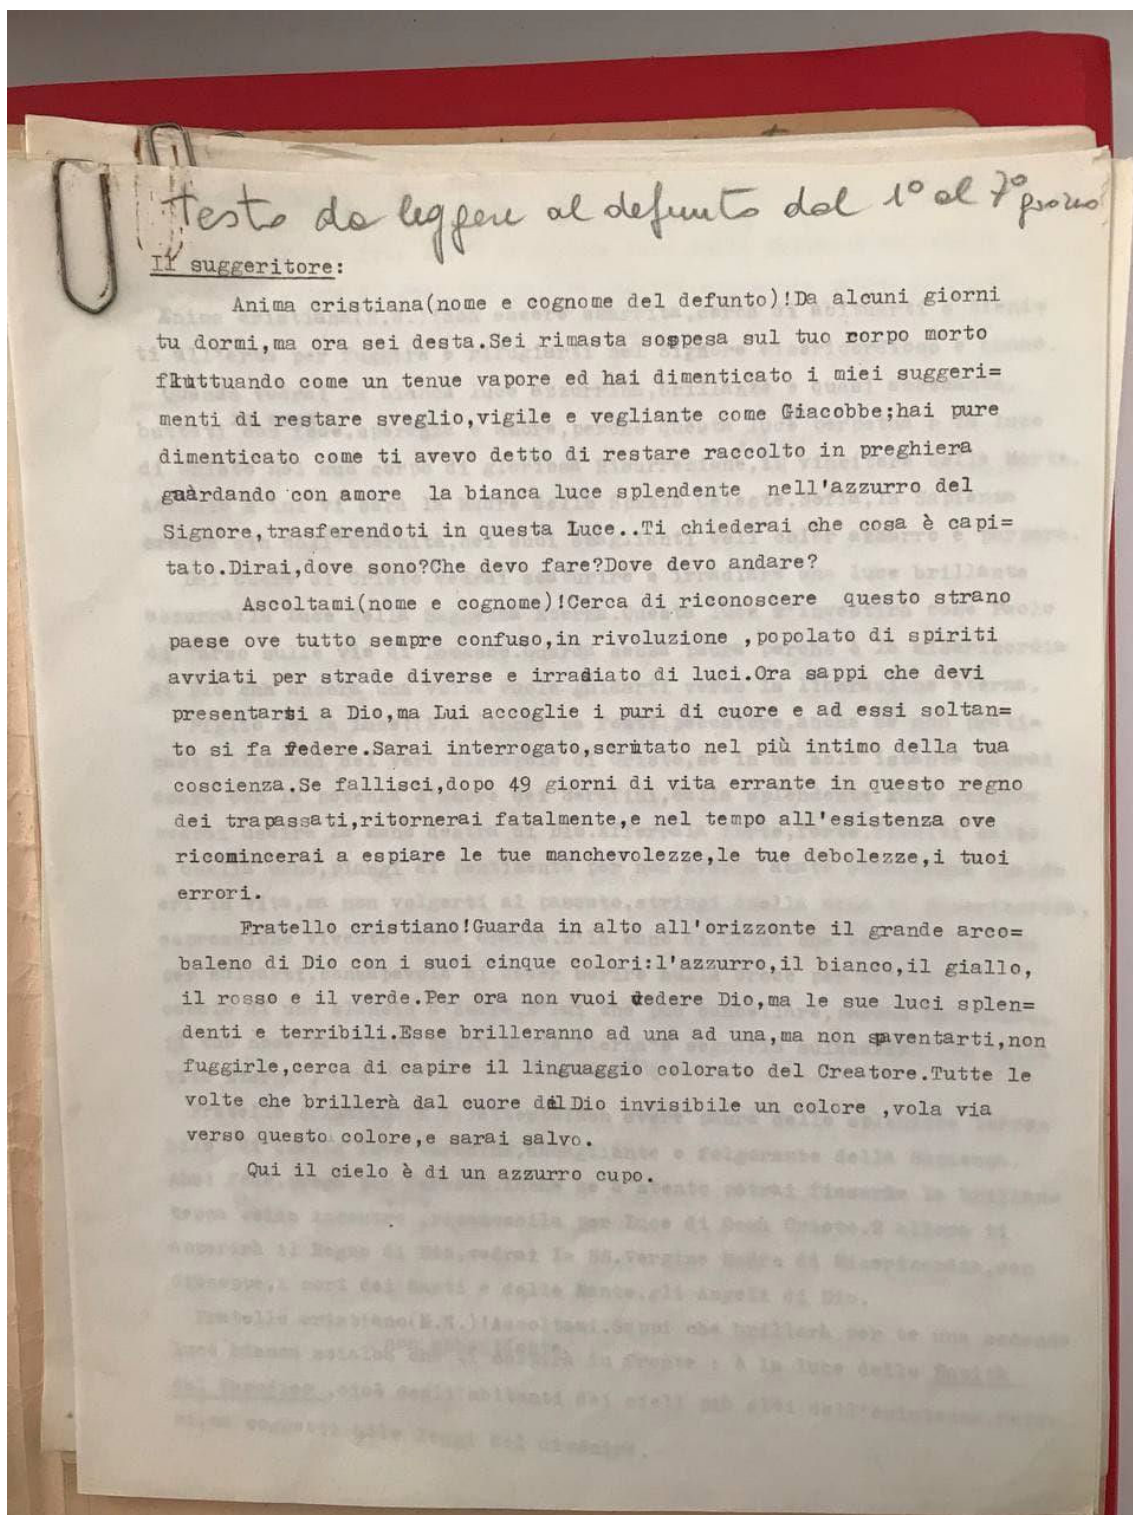 Testo da leggere al defunto dal 1° al 7° giorno
Il suggeritore:
Anima cristiana(nome e cognome del defunto)!Da alcuni giorni
tu dormi,ma ora sei desta.Sei rimasta sospesa sul tuo corpo morto
fluttuando come un tenue vapore ed hai dimenticato i miei suggeri=
menti di restare sveglio,vigile e vegliante come Giacobbe;hai pure
dimenticato come ti avevo detto di restare raccolto in preghiera
guardando con amore la bianca luce splendente nell'azzurro del
Signore,trasferendoti in questa Luce..Ti chiederai che cosa è capi=
tato.Dirai,dove sono?Che devo fare?Dove devo andare?
Ascoltami(nome e cognome)!Cerca di riconoscere questo strano
paese ove tutto sempre confuso,in rivoluzione ,popolato di spiriti
avviati per strade diverse e irradiato di luci.Ora sappi che devi
presentarti a Dio,ma Lui accoglie i puri di cuore e ad essi soltan=
to si fa vedere.Sarai interrogato,scrutato nel più intimo della tua
coscienza.Se fallisci,dopo 49 giorni di vita errante in questo regno
dei trapassati,ritornerai fatalmente,e nel tempo all'esistenza ove
ricomincerai a espiare le tue manchevolezze,le tue debolezze,i tuoi
errori.
Fratello cristiano!Guarda in alto all'orizzonte il grande arco=
baleno di Dio con i suoi cinque colori:l'azzurro,il bianco,il giallo,
il rosso e il verde.Per ora non vuoi vedere Dio,ma le sue luci splen=
denti e terribili.Esse brilleranno ad una ad una,ma non spaventarti,non
fuggirle,cerca di capire il linguaggio colorato del Creatore.Tutte le
volte che brillerà dal cuore del Dio invisibile un colore ,vola via
verso questo colore,e sarai salvo.
Qui il cielo è di un azzurro cupo.